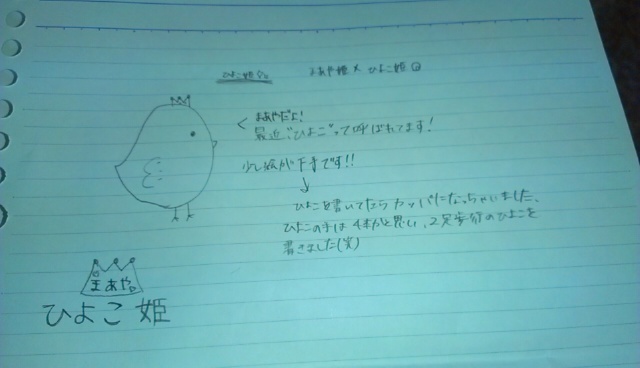 ひよこ姫
まあや姫 × ひよこ姫
まあやだよ!
最近"ひよこ"って呼ばれてます!
少し絵が下手です!!
↓
ひよこを書いてたらカッパになっちゃいました、
ひよこの手は4本かと思い、2足歩行のひよこを
書きました(笑)
まあや
ひよこ姫